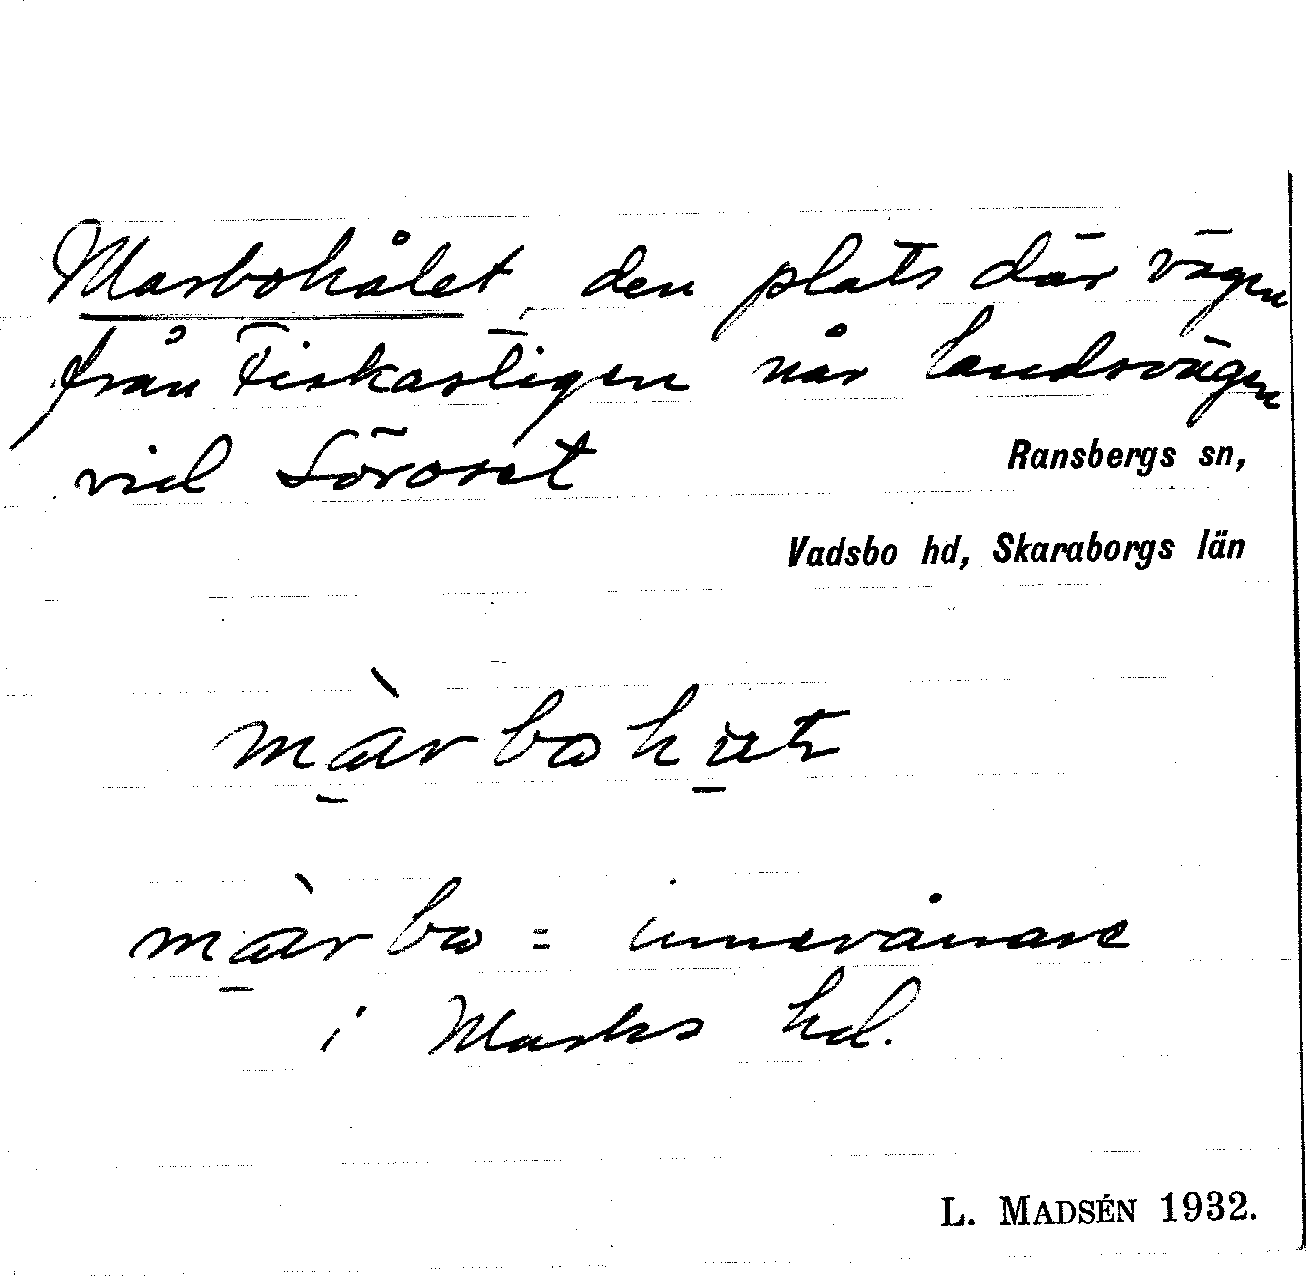 Marbohålet, den plats där vägen
från Fiskastigen når landsvägen
vid Söroset
Ransbergs sn,
Vadsbo hd, Skaraborgs län
= innevånare
i Marks hd.
L. MADSÉN 1932.